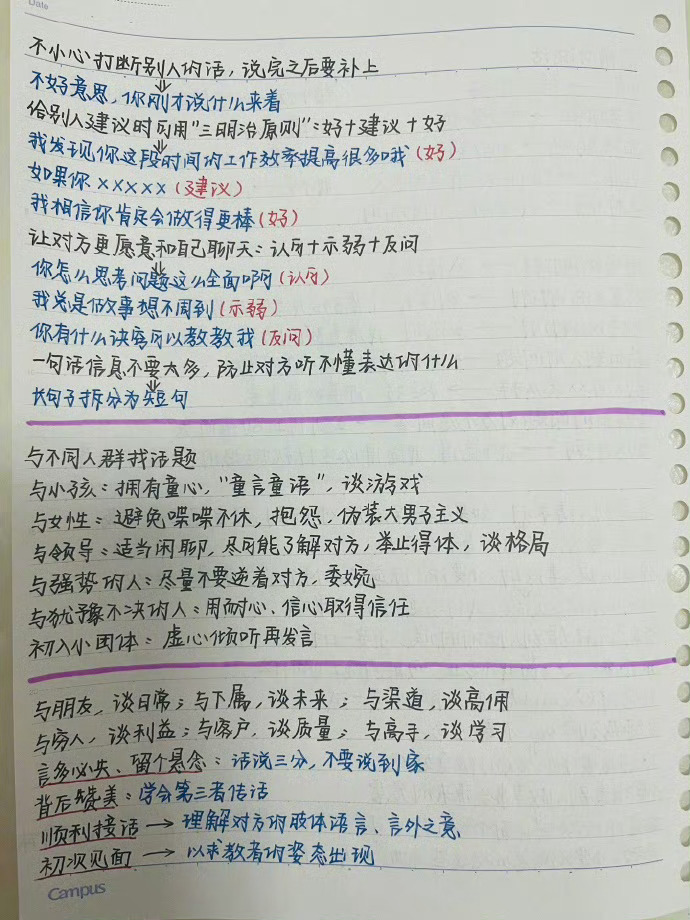 Date
不小心打断别人的话，说完之后要补上
不好意思，你刚才说什么来着
给别人建议时可用"三明治原则"：好+建议+好
我发现你这段时间的工作效率提高很多哦(好)
如果你×××××(建议)
我相信你肯定会做得更棒(好)
让对方更愿意和自己聊天：认可+示弱+反问
你怎么思考问题这么全面啊(认可)
我总是做事想不周到(示弱)
你有什么诀窍可以教教我(反问)
一句话信息不要太多，防止对方听不懂表达的什么
长句子拆分为短句
与不同人群找话题
与小孩：拥有童心，"童言童语"，谈游戏
与女性：避免喋喋不休，抱怨，伪装大男子主义
与领导：适当闲聊，尽可能了解对方，举止得体，谈格局
与强势的人：尽量不要逆着对方，委婉
与犹豫不决的人：用耐心、信心取得信任
初入小团体：虚心倾听再发言
与朋友，谈日常；与下属，谈未来；与渠道，谈高佣
与穷人，谈利益；与客户，谈质量；与高手，谈学习
言多必失、留个悬念：话说三分，不要说到家
背后赞美：学会第三者传话
顺利接话→理解对方的肢体语言、言外之意
初次见面→以求教者的姿态出现
Campus